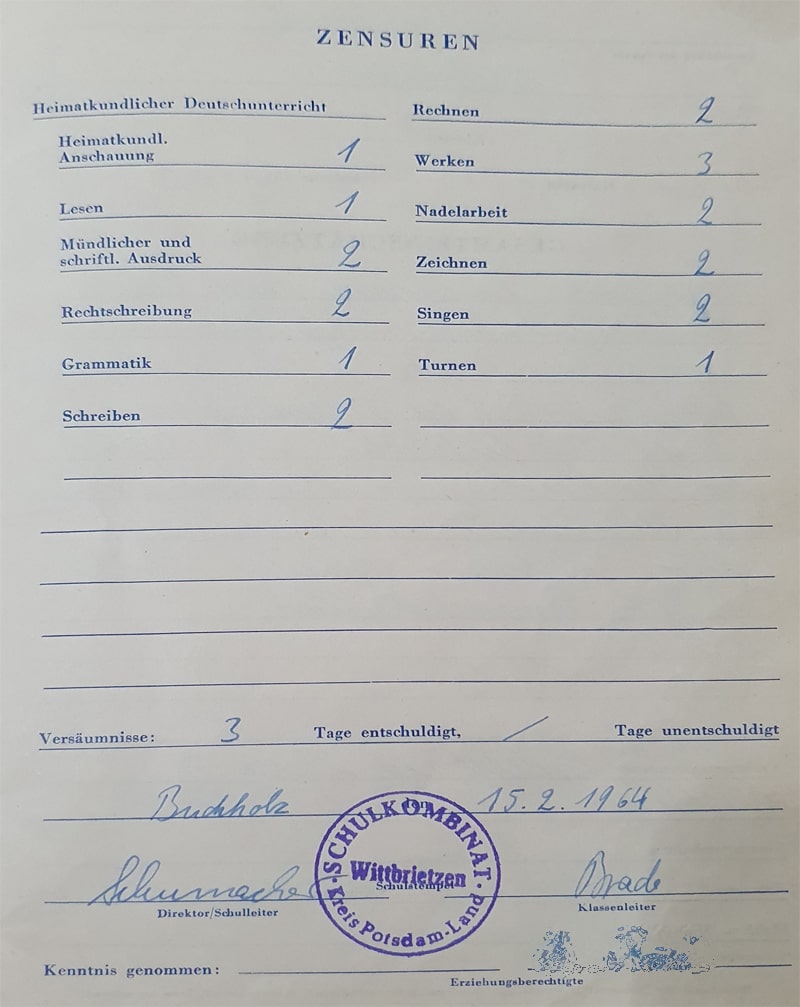 ZENSUREN
Heimatkundlicher Deutschunterricht
Heimatkundl.
Anschauung 1
Lesen 1
Mündlicher und
schriftl. Ausdruck 2
Rechtschreibung 2
Grammatik 1
Schreiben 2
Rechnen 2
Werken 3
Nadelarbeit 2
Zeichnen 2
Singen 2
Turnen 1
Versäumnisse: 3 Tage entschuldigt, / Tage unentschuldigt
Buchholz, den 15. 2. 1964
SCHULKOMBINAT
Wittbrietzen
Schulstempel
Kreis Potsdam-Land
Schumacher
Direktor/Schulleiter
Brade
Klassenleiter
Kenntnis genommen:
Erziehungsberechtigte